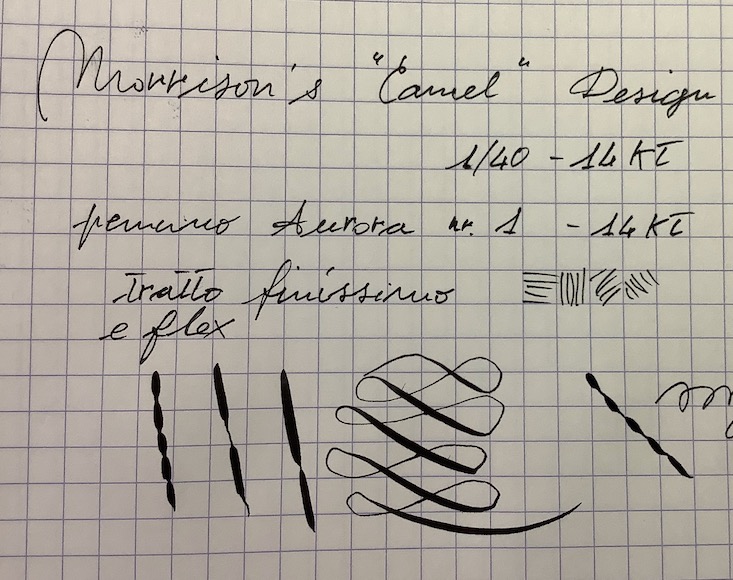 Morrison's "Camel" Design
1/40 - 14 KT
pennino Aurora nr. 1 - 14 KT
Tratto finissimo
e flex